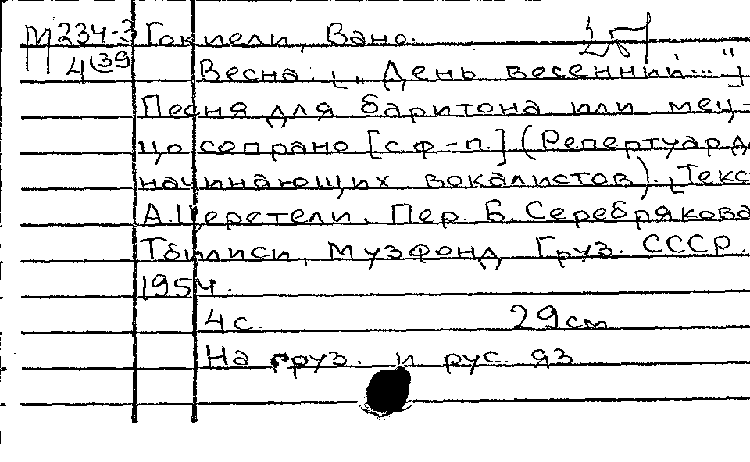 М 234-3 Гокиели, Вано.
4(39 Весна: [„День весенний..."]
Песня для баритона или мец-
цо сопрано [с ф-п.] (Репертуар д
начинающих вокалистов). [Текс
А. Церетели. Пер. Б. Серебрякова
Тбилиси, Музфонд Груз. СССР.
1954.
4 с. 29 см
На груз. и рус. яз